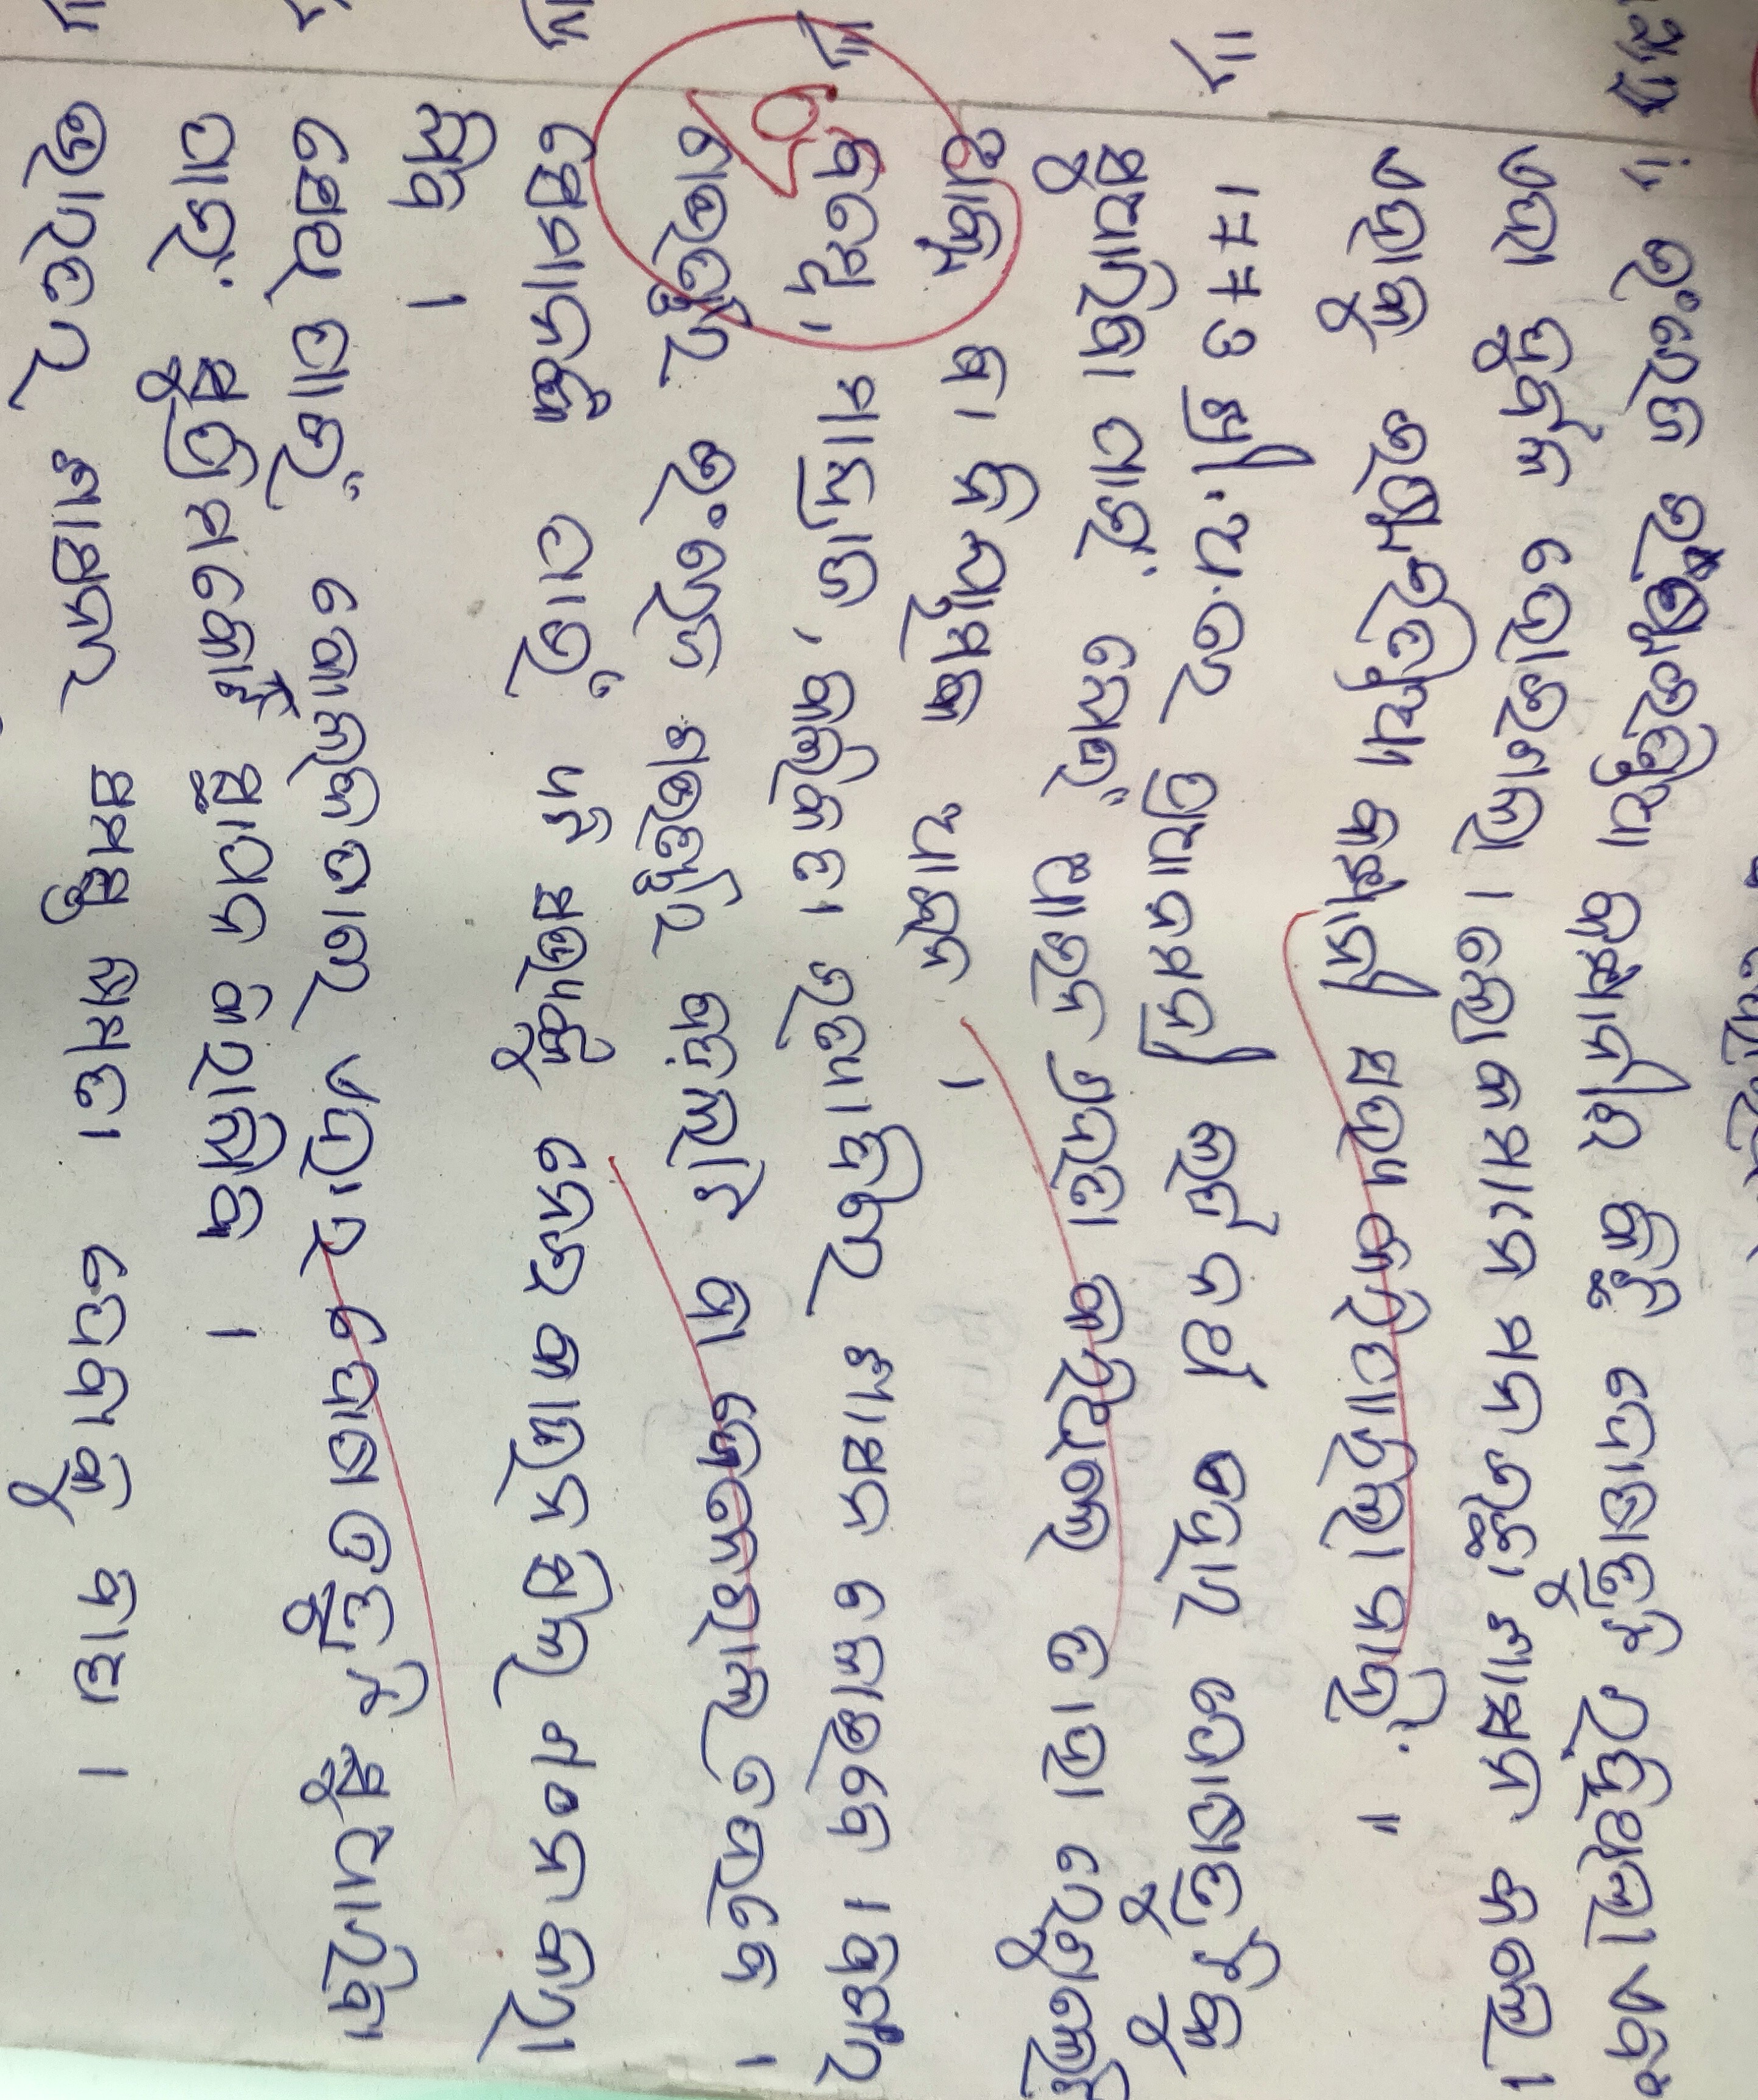 i) ଇଂରେଜ ଇଷ୍ଟଇଣ୍ଡିଆ କମ୍ପାନୀର କିଛି ଦୋଷତ୍ରୁଟି ରହିଥିଲା ଏବଂ
ଏହା ଦୁର୍ବଳ ହୋଇଗଲା । ଲୋକମାନେ ମନଇଚ୍ଛା ଶାସନ କଲେ ।
ଏହାକୁ ଇଷ୍ଟଇଣ୍ଡିଆ କମ୍ପାନୀ ସହ୍ୟ କରିପାରିଲା ନାହିଁ ॥
ii) 1773 ଖ୍ରୀ.ଅ.ରେ ପ୍ରଧାନମନ୍ତ୍ରୀ ଲର୍ଡ ନର୍ଥ ଏହାର ଦୋଷତ୍ରୁଟିକୁ
ସୁଧାରିବା ପାଇଁ ଯେଉଁ ଆଇନ କରିଥିଲେ ତାହା ରେଗୁଲେଟିଂ
ଆକ୍ଟ ବା ନିୟାମକ ଆଇନ ।
iii) ବମ୍ବେ, ମାନ୍ଦ୍ରାଜ, କଲିକତା ଇତ୍ୟାଦିରେ ଶାସନ ଚଳାଇବେ । ବଙ୍ଗର
ଗଭର୍ଣ୍ଣର ଇଂରେଜ ଗଭର୍ଣ୍ଣର ବଡ଼ଲାଟ ବା ଜେନେରାଲ ହେବେ ।
iv) ସେମାନଙ୍କ ପାଇଁ ୪ଟି ସଭ୍ୟଙ୍କୁ ନେଇ କାଉନସିଲ ଗଠନ କରା
ଯିବ ।
ସେଥି ପାଇଁ କୋଲକତାରେ ଏହାର ଦୋଷ ଓ ତ୍ରୁଟି ସୁଧାରିବା
ପାଇଁ ସୁପ୍ରିମକୋର୍ଟ ସ୍ଥାପନ କରାଯିବ ।
ଭାରତର ଶାସନର ସମସ୍ତ କ୍ଷମତା ଦେବାକୁ ବାଧ ।